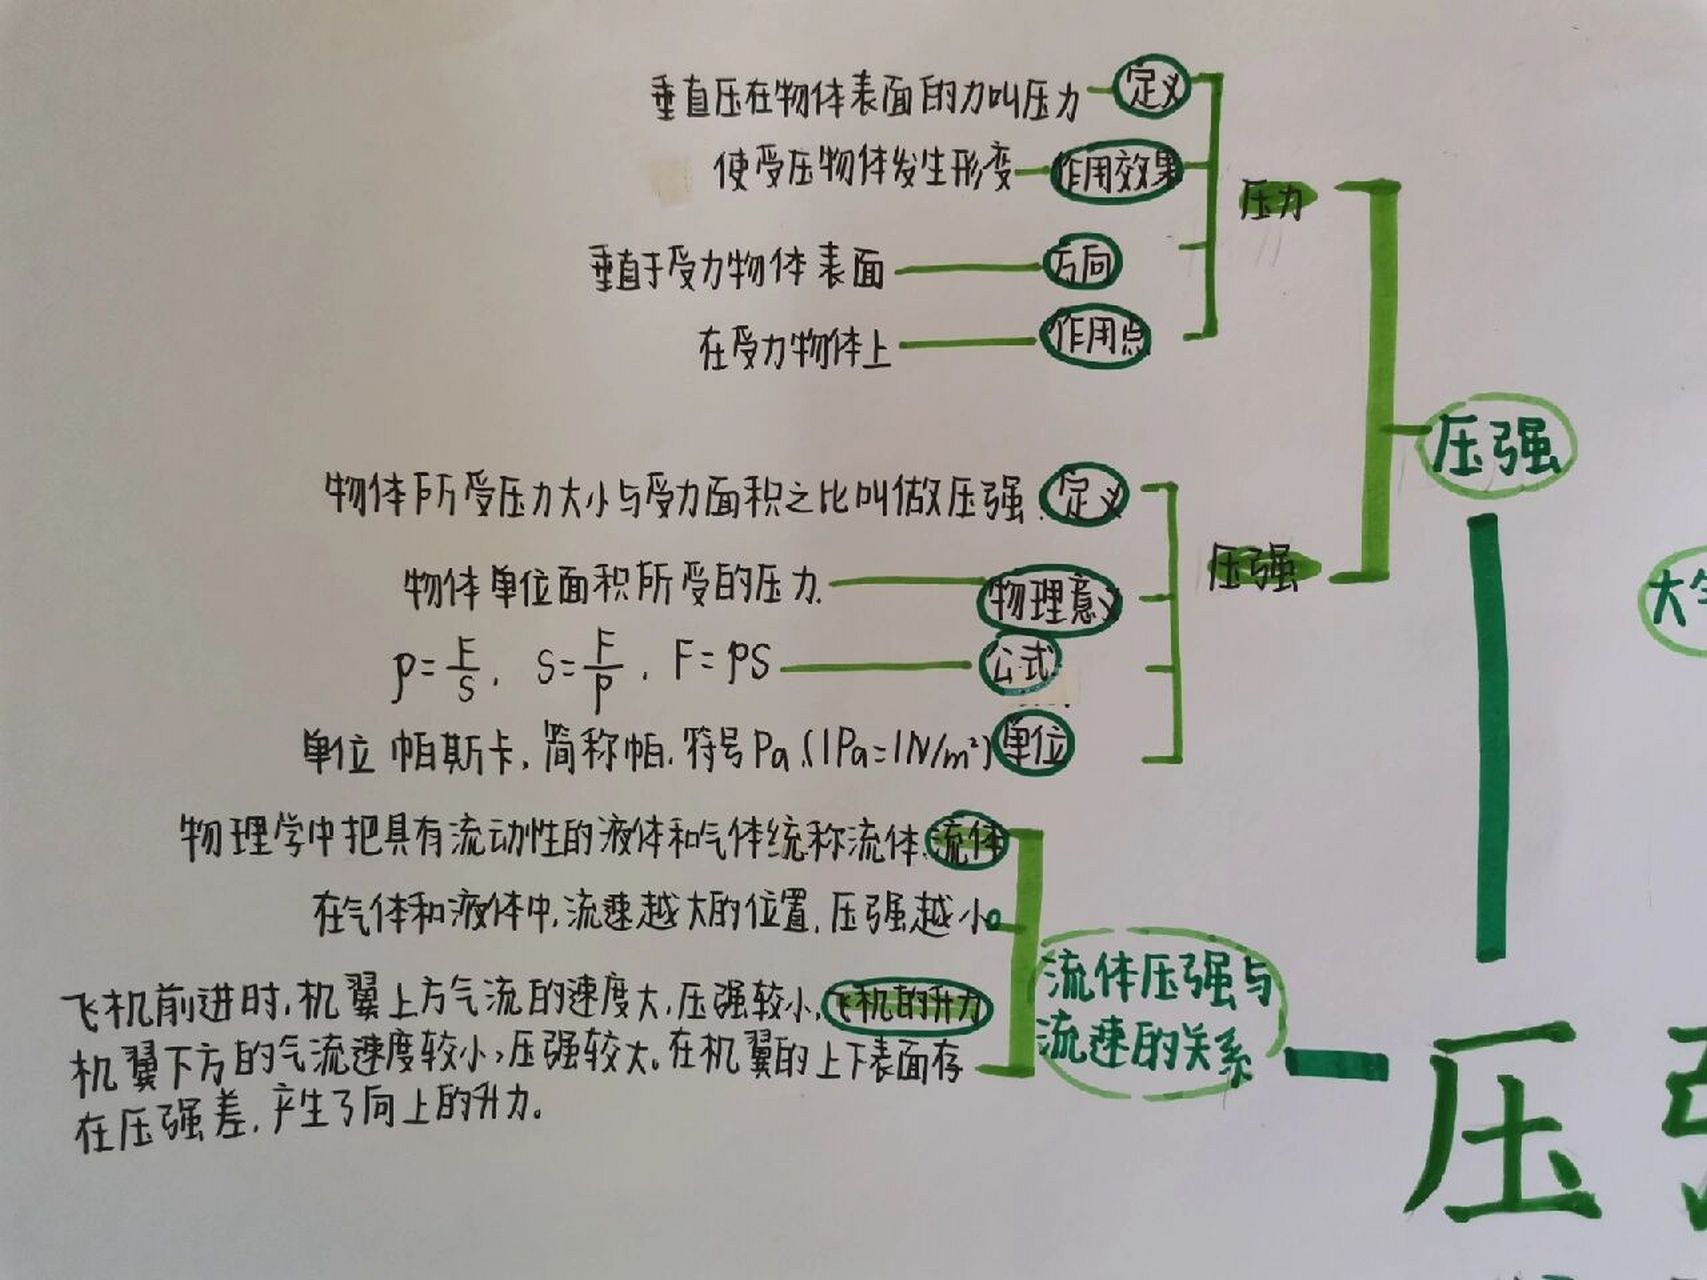 垂直压在物体表面的力叫压力 定义
使受压物体发生形变 作用效果
压力
垂直于受力物体表面 方向
在受力物体上 作用点
压强
物体所受压力大小与受力面积之比叫做压强. 定义
压强
物体单位面积所受的压力. 物理意义
p=F/S, S=F/P, F=pS 公式
单位 帕斯卡,简称帕.符号Pa.(1Pa=1N/m²) 单位
物理学中把具有流动性的液体和气体统称流体. 流体
在气体和液体中,流速越大的位置,压强越小。
流体压强与
流速的关系
飞机前进时,机翼上方气流的速度大,压强较小, 飞机的升力
机翼下方的气流速度较小,压强较大。在机翼的上下表面存
在压强差,产生了向上的升力。
压
大